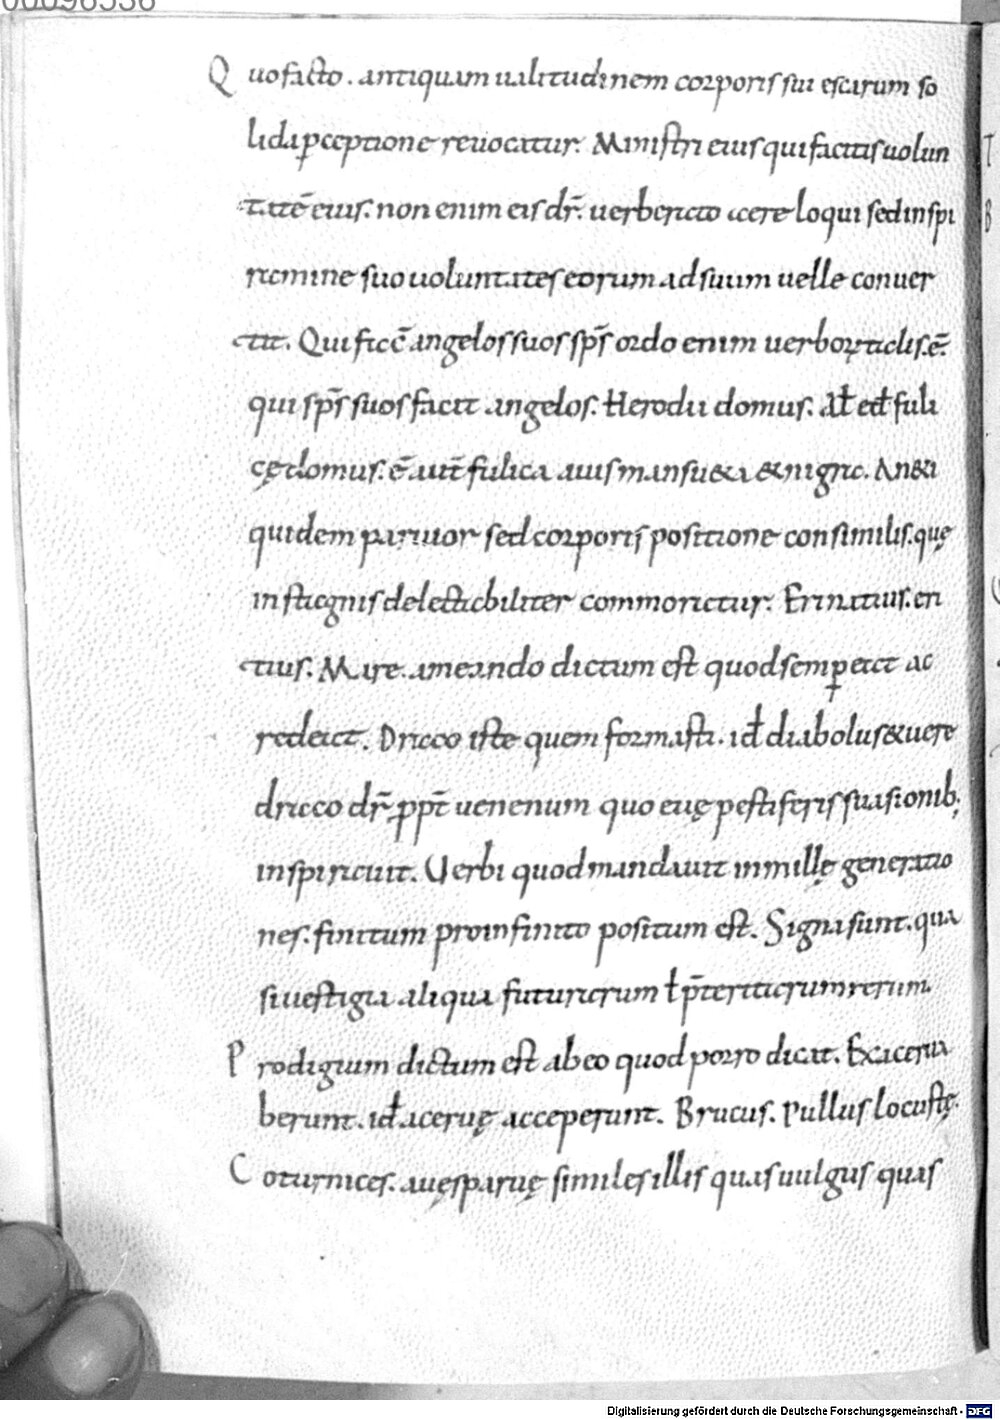 00096536
Quo facto. antiquam ualitudinem corporis sui escarum so
lida ꝑceptione reuocatur. Ministri eius qui facitis uolun
tatē eius. non enim eis dr̄. uerberato aere loqui sed inspi
ramine suo uoluntates eorum ad suum uelle conuer
tit. Qui fac̄ angelos suos sp̄s ordo enim uerboꝝ talis. ē.
qui sp̄s suos facit angelos. Herodii domus. Aƚ ed fuli
cę domus. ē aut̄ fulica auis mansu&a & nigra. An&i
quidem paruior sed corporis positione consimilis. quę
in stagnis delectabiliter commoratur. Erinatius. eri
tius. Mare. ameando dictum est quod semꝑ eat ac
redeat. Draco iste quem formasti. id̵ diabolus & uere
draco dr̄ ꝓpt̄ uenenum quo euę pestiferis suasionib;
inspirauit. Uerbi quod mandauit in mille generatio
nes. finitum pro infinito positum est. Signa sunt. qua
si uestigia aliqua futurarum ƚ p̄teritarum rerum.
Prodigium dictum est ab eo quod porro dicat. Exacerua
berunt. id̵ aceruę acceperunt. Brucus. Pullus locustę.
Coturnices. auęs paruę similes illis quas uulgus quas
Digitalisierung gefördert durch die Deutsche Forschungsgemeinschaft - DFG